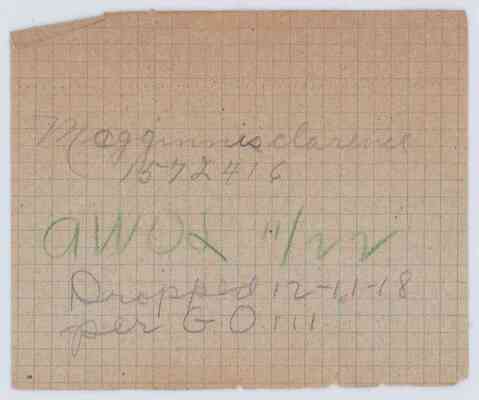 Magginnis Clarence
1572416
AWOL 11/22
Dropped 12-11-18
per G.O. 111